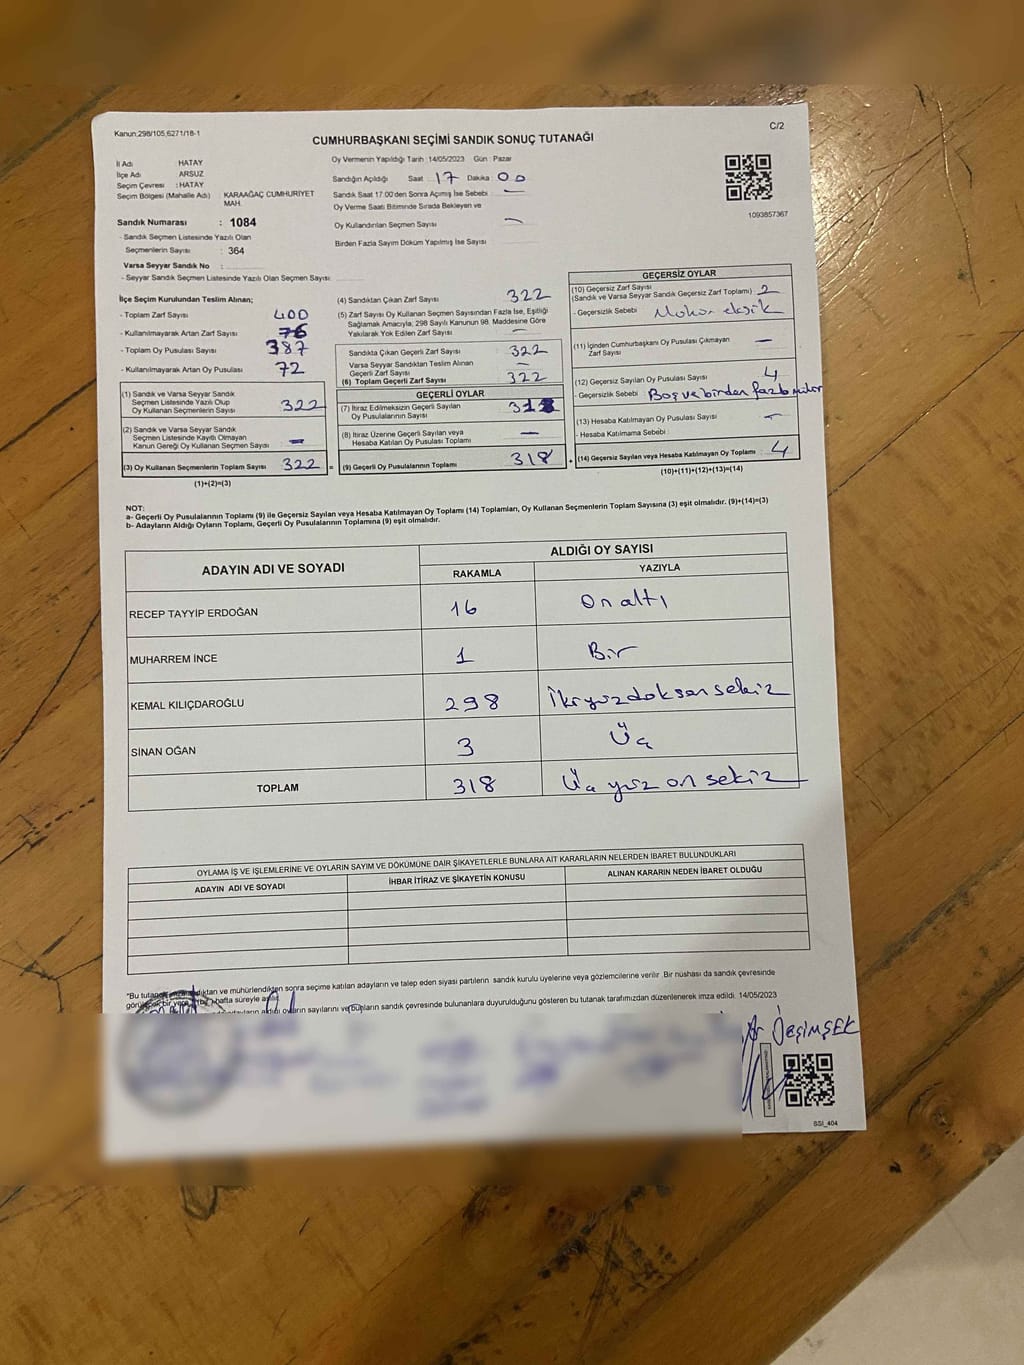 Kanun;298/105,6271/18-1
C/2
CUMHURBAŞKANI SEÇİMİ SANDIK SONUÇ TUTANAĞI
İl Adı HATAY
İlçe Adı ARSUZ
Seçim Çevresi : HATAY
Seçim Bölgesi (Mahalle Adı) : KARAAĞAÇ CUMHURİYET MAH.
Sandık Numarası : 1084
- Sandık Seçmen Listesinde Yazılı Olan
Seçmenlerin Sayısı : 364
Varsa Seyyar Sandık No :
- Seyyar Sandık Seçmen Listesinde Yazılı Olan Seçmen Sayısı:
Oy Vermenin Yapıldığı Tarih :14/05/2023 Gün : Pazar
Sandığın Açıldığı Saat 17 Dakika 00
Sandık Saat 17.00'den Sonra Açılmış İse Sebebi —
Oy Verme Saati Bitiminde Sırada Bekleyen ve
Oy Kullandırılan Seçmen Sayısı —
Birden Fazla Sayım Döküm Yapılmış İse Sayısı
1093857367
İlçe Seçim Kurulundan Teslim Alınan;
- Toplam Zarf Sayısı 400
- Kullanılmayarak Artan Zarf Sayısı 76
- Toplam Oy Pusulası Sayısı 387
- Kullanılmayarak Artan Oy Pusulası 72
(1) Sandık ve Varsa Seyyar Sandık
Seçmen Listesinde Yazılı Olup
Oy Kullanan Seçmenlerin Sayısı 322
(2) Sandık ve Varsa Seyyar Sandık
Seçmen Listesinde Kayıtlı Olmayan
Kanun Gereği Oy Kullanan Seçmen Sayısı —
(3) Oy Kullanan Seçmenlerin Toplam Sayısı 322 =
(1)+(2)=(3)
(4) Sandıktan Çıkan Zarf Sayısı 322
(5) Zarf Sayısı Oy Kullanan Seçmen Sayısından Fazla İse, Eşitliği
Sağlamak Amacıyla, 298 Sayılı Kanunun 98. Maddesine Göre
Yakılarak Yok Edilen Zarf Sayısı —
Sandıkta Çıkan Geçerli Zarf Sayısı 322
Varsa Seyyar Sandıktan Teslim Alınan
Geçerli Zarf Sayısı —
(6) Toplam Geçerli Zarf Sayısı 322
GEÇERLİ OYLAR
(7) İtiraz Edilmeksizin Geçerli Sayılan
Oy Pusulalarının Sayısı 318
(8) İtiraz Üzerine Geçerli Sayılan veya
Hesaba Katılan Oy Pusulası Toplamı —
(9) Geçerli Oy Pusulalarının Toplamı 318 +
GEÇERSİZ OYLAR
(10) Geçersiz Zarf Sayısı
(Sandık ve Varsa Seyyar Sandık Geçersiz Zarf Toplamı) 2
- Geçersizlik Sebebi Mühür eksik
(11) İçinden Cumhurbaşkanı Oy Pusulası Çıkmayan
Zarf Sayısı —
(12) Geçersiz Sayılan Oy Pusulası Sayısı 4
- Geçersizlik Sebebi Boş ve birden fazla mühür
(13) Hesaba Katılmayan Oy Pusulası Sayısı —
- Hesaba Katılmama Sebebi :
(14) Geçersiz Sayılan veya Hesaba Katılmayan Oy Toplamı : 4
(10)+(11)+(12)+(13)=(14)
NOT:
a- Geçerli Oy Pusulalarının Toplamı (9) ile Geçersiz Sayılan veya Hesaba Katılmayan Oy Toplamı (14) Toplamları, Oy Kullanan Seçmenlerin Toplam Sayısına (3) eşit olmalıdır. (9)+(14)=(3)
b- Adayların Aldığı Oyların Toplamı, Geçerli Oy Pusulalarının Toplamına (9) eşit olmalıdır.
ADAYIN ADI VE SOYADI ALDIĞI OY SAYISI
RAKAMLA YAZIYLA
RECEP TAYYİP ERDOĞAN 16 On altı
MUHARREM İNCE 1 Bir
KEMAL KILIÇDAROĞLU 298 İkiyüzdoksansekiz
SİNAN OĞAN 3 Üç
TOPLAM 318 Üç yüz on sekiz
OYLAMA İŞ VE İŞLEMLERİNE VE OYLARIN SAYIM VE DÖKÜMÜNE DAİR ŞİKAYETLERLE BUNLARA AİT KARARLARIN NELERDEN İBARET BULUNDUKLARI
ADAYIN ADI VE SOYADI İHBAR İTİRAZ VE ŞİKAYETİN KONUSU ALINAN KARARIN NEDEN İBARET OLDUĞU
"Bu tutanak imzalandıktan ve mühürlendikten sonra seçime katılan adayların ve talep eden siyasi partilerin sandık kurulu üyelerine veya gözlemcilerine verilir .Bir nüshası da sandık çevresinde
bir yere (bir) hafta süreyle asılır.
aldığı oyların sayılarını ve bunların sandık çevresinde bulunanlara duyurulduğunu gösteren bu tutanak tarafımızdan düzenlenerek imza edildi. 14/05/2023
ÖZŞİMŞEK
BSI_404